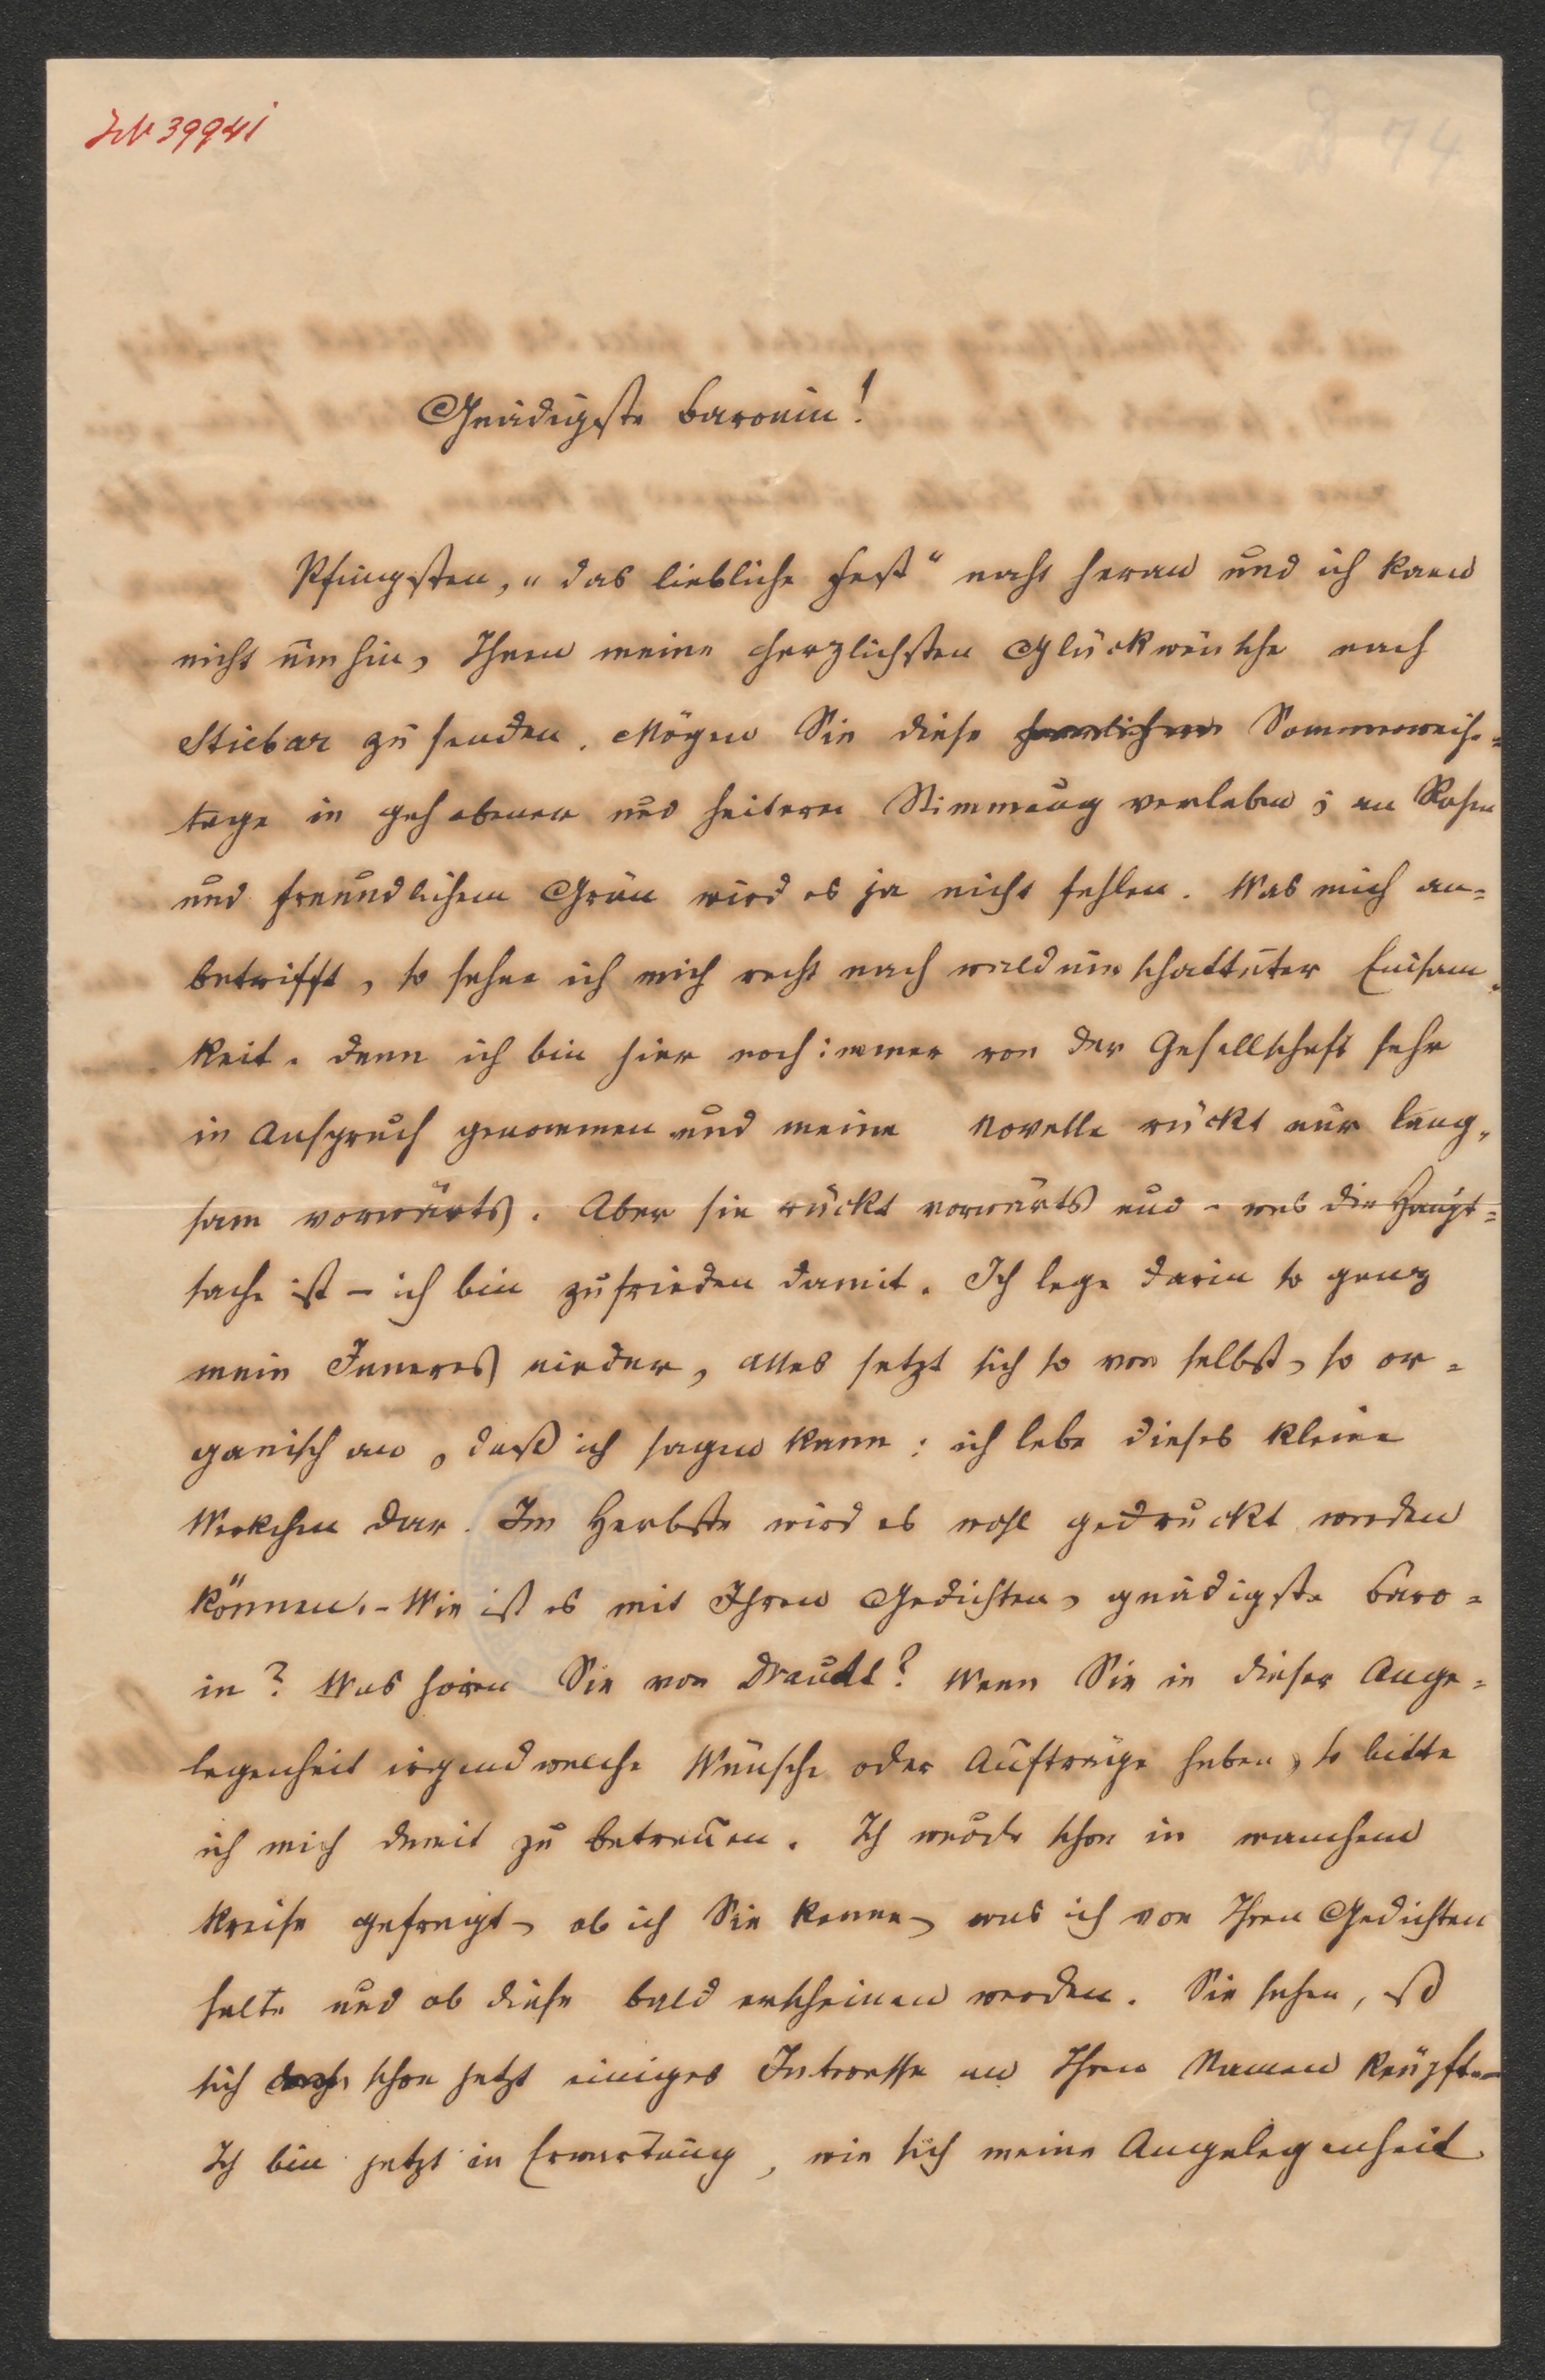 IN 39941
74
Gnädigste Baronin!
Pfingsten, „das liebliche Fest“ naht heran und ich kann
nicht umhin, Ihnen meine herzlichsten Glückwünsche nach
Stiebar zu senden. Mögen Sie diese Sommerweihe=
tage in gehobener und heiterer Stimmung verleben; an Rosen
und freundlichem Grün wird es ja nicht fehlen. Was mich an=
betrifft, so sehne ich mich recht nach waldumschatteter Einsam=
keit. denn ich bin hier noch immer von der Gesellschaft sehr
in Anspruch genommen und meine Novelle rückt nur lang=
sam vorwärts. Aber sie rückt vorwärts und – was die Haupt=
sache ist – ich bin zufrieden damit. Ich lege darin so ganz
mein Inneres nieder, alles setzt sich so von selbst, so or=
ganisch an, daß ich sagen kann: ich lebe dieses kleine
Werkchen dar. Im Herbste wird es wohl gedruckt werden
können. – Wie ist es mit Ihren Gedichten, gnädigste Baro=
in? Was hören Sie von Draudt? Wenn Sie in dieser Ange=
legenheit irgend welche Wünsche oder Aufträge haben, so bitte
ich mich damit zu betrauen. Ich wurde schon in manchem
Kreise gefragt, ob ich Sie kenne, was ich von Ihren Gedichten
halte und ob diese bald erscheinen werden. Sie sehen, es
sich schon jetzt einiges Interesse an Ihren Namen knüpft. –
Ich bin jetzt in Erwartung, wie sich meine Angelegenheit